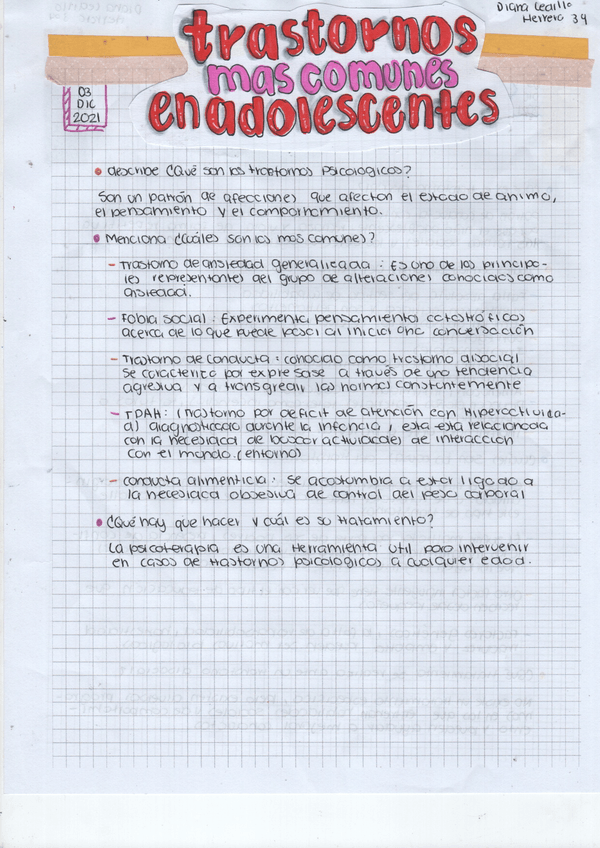 Diana Cecilia
Herrera 34
trastornos
mas comunes
en adolescentes
03
DIC
2021
describe ¿Qué son los trastornos psicologicos?
Son un patrón de afecciones que afectan el estado de animo,
el pensamiento y el comportamiento.
Menciona ¿Cuáles son los mas comunes?
- Trastorno de ansiedad generalizada : Es uno de los principa-
les representantes del grupo de alteraciones conocidas como
ansiedad.
- Fobia social : Experimenta pensamiento catastróficos
acerca de lo que puede pasar al iniciar una conversación
- Trastorno de conducta : conocido como trastorno disocial
se caracteriza por expresase a través de una tendencia
agresiva y a transgredir las normas constantemente
- TDAH : (Trastorno por deficit de atención con Hiperactivida-
d) diagnosticado durante la infancia, esta está relacionada
con la necesidad de buscar actividades de interaccion
con el mundo. (entorno)
- conducta alimenticia : se acostumbra a estar ligado a
la necesidad obsesiva de control del peso corporal
¿Qué hay que hacer y cuál es su tratamiento?
La psicoterapia es una herramienta util para intervenir
en casos de trastornos psicologicos a cualquier edad.